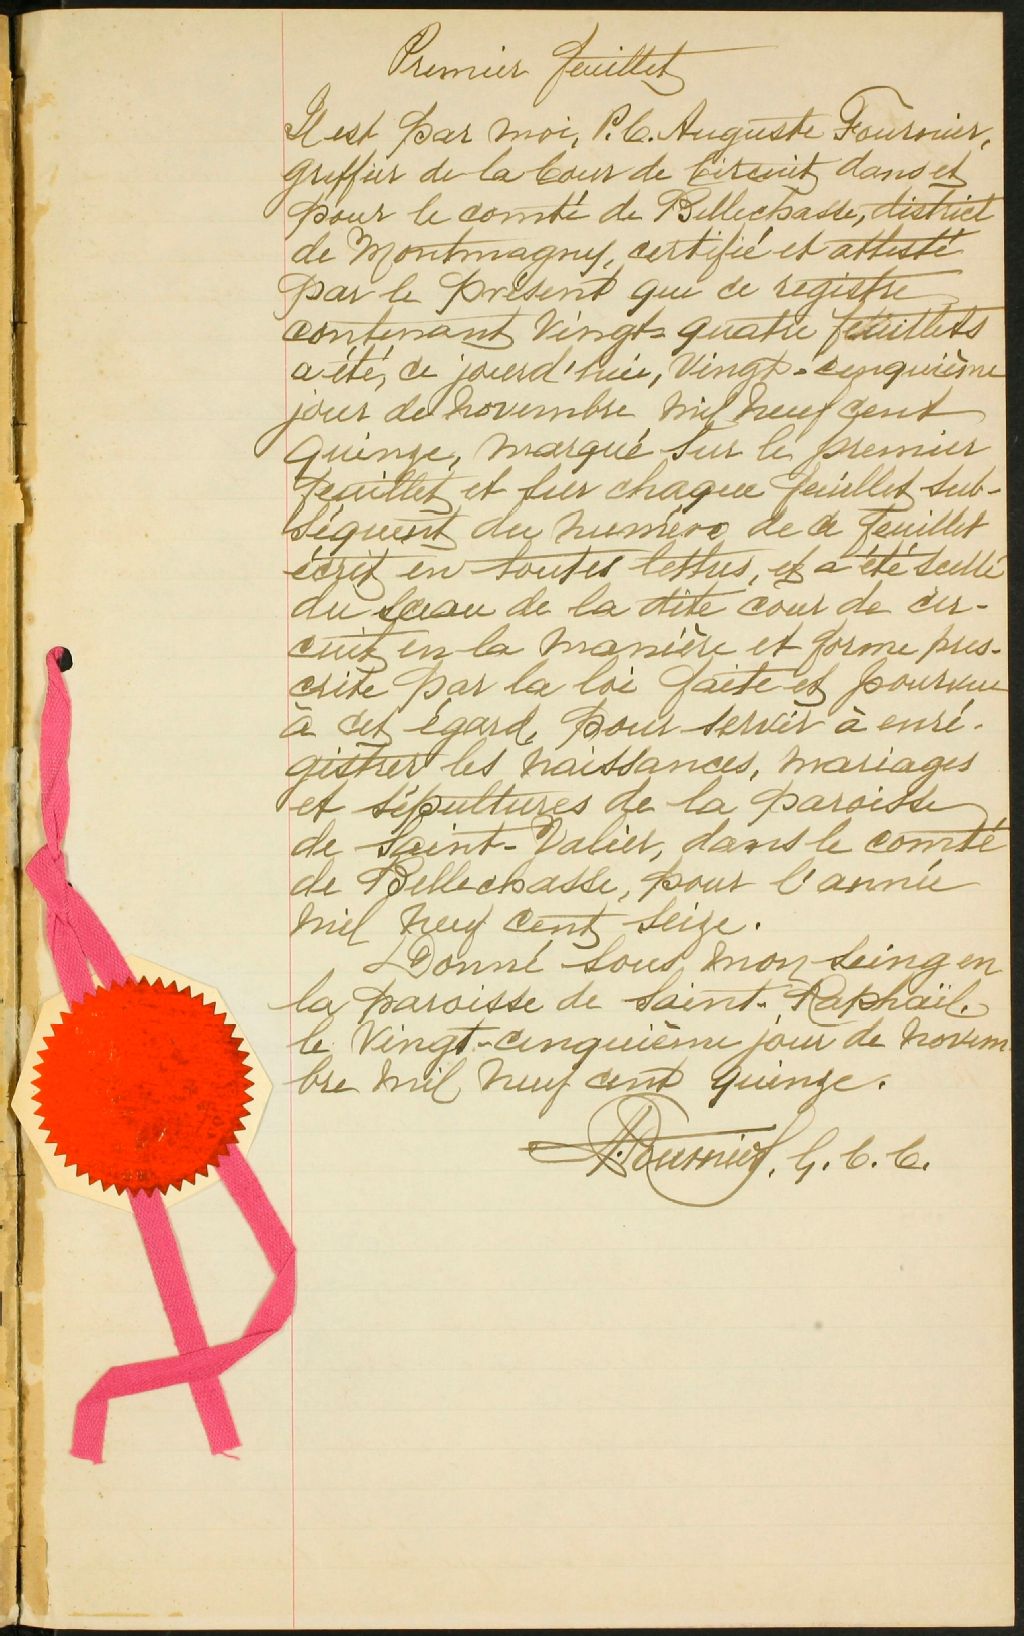 Premier feuillet
Il est par moi, P. C. Auguste Fournier,
greffier de la Cour de Circuit dans et
pour le comté de Bellechasse, district
de Montmagny, certifié et attesté
par le présent que ce registre
contenant vingt-quatre feuillets
a été, ce jourd'hui, vingt-cinquième
jour de novembre mil neuf cent
quinze, marqué sur le premier
feuillet et sur chaque feuillet sub-
séquent du numéro de ce feuillet
écrit en toutes lettres, et a été scellé
du sceau de la dite cour de cir-
cuit en la manière et forme pres-
crite par la loi faite et pourvue
à cet égard, pour servir à enré-
gistrer les naissances, mariages
et sépultures de la paroisse
de Saint-Valier, dans le comté
de Bellechasse, pour l'année
mil neuf cent seize.
Donné sous mon seing en
la paroisse de Saint-Raphaël,
le vingt-cinquième jour de novem
bre mil neuf cent quinze.
A. Fournier, G. C. C.